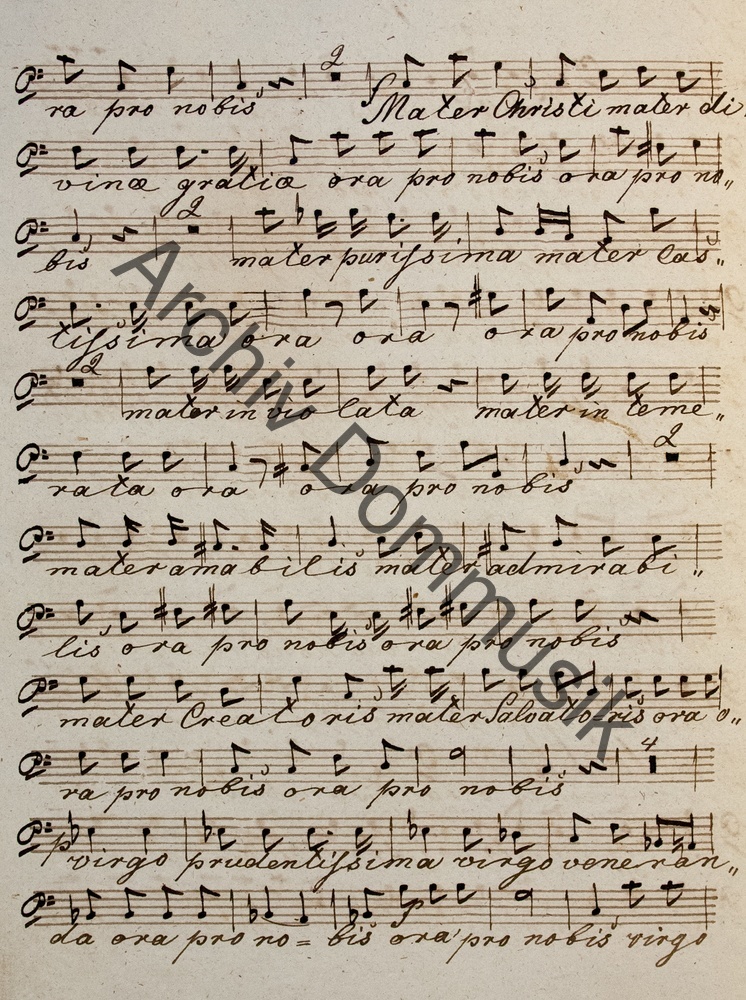 2
ra pro nobis Mater Christi mater di
vinæ gratiæ ora pro nobis ora pro no„
2
bis mater purissima mater cas„
tissima ora ora ora pro nobis
2
mater in vio lata mater in teme„
2
rata ora ora pro nobis
mater amabilis mater admirabi„
lis ora pro nobis ora pro nobis
mater Creatoris mater Salvato=ris ora o„
4
ra pro nobis ora pro nobis
p
virgo prudentissima virgo veneran„
f
da ora pro no= bis ora pro nobis virgo
Archiv Dommusik